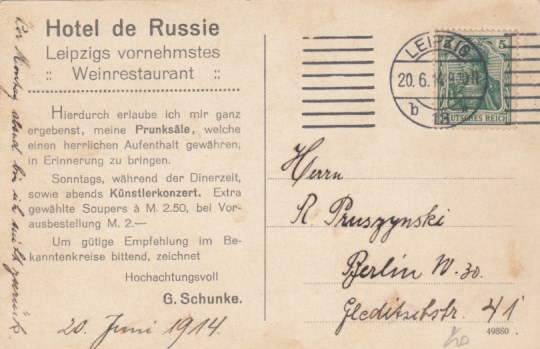 Hotel de Russie
Leipzigs vornehmstes
:: Weinrestaurant ::
Hierdurch erlaube ich mir ganz
ergebenst, meine Prunksäle, welche
einen herrlichen Aufenthalt gewähren,
in Erinnerung zu bringen.
Sonntags, während der Dinerzeit,
sowie abends Künstlerkonzert. Extra
gewählte Soupers à M. 2.50, bei Vor-
ausbestellung M. 2.—
Um gütige Empfehlung im Be-
kanntenkreise bittend, zeichnet
Hochachtungsvoll
G. Schunke.
20. Juni 1914.
Montag abend bin ich nicht zurück
LEIPZIG
20.6.14.
b
5
DEUTSCHES REICH
Herrn
R. Pruszynski
Berlin W. 30.
Gleditschstr. 41
49880